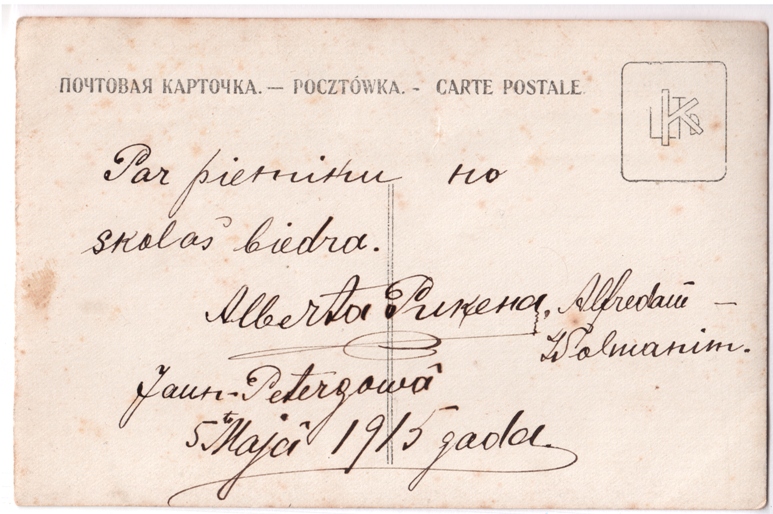 ПОЧТОВАЯ КАРТОЧКА. — POCZTÓWKA. - CARTE POSTALE.
Par piemiņu no
skolas biedra.
Alberta Puķena, Alfredam —
Wolmanim.
Jaun-Petergowâ
5 Majâ 1915 gada.